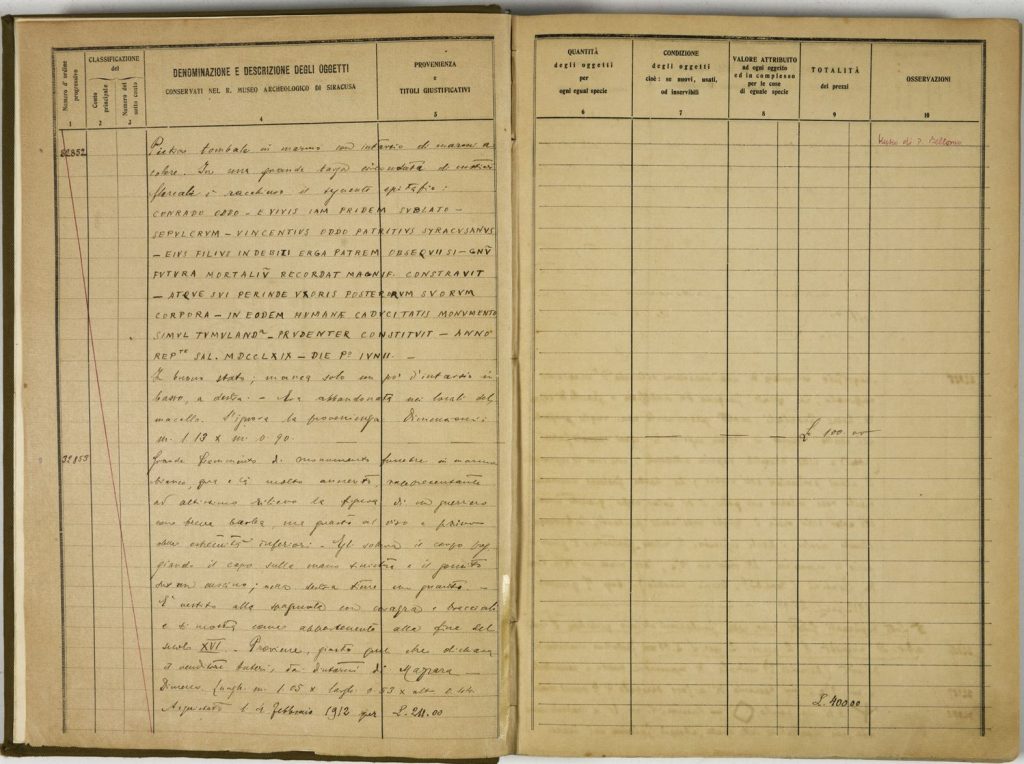 Numero d' ordine progressivo
CLASSIFICAZIONE
del
Conto principale
Numero del sotto conto
DENOMINAZIONE E DESCRIZIONE DEGLI OGGETTI
CONSERVATI NEL R. MUSEO ARCHEOLOGICO DI SIRACUSA
PROVENIENZA
e
TITOLI GIUSTIFICATIVI
1 2 3 4 5
32852
Pietra tombale in marmo con intarsio di marmi a
colore. In una grande targa circondata di motivi
floreali è racchiuso il seguente epitafio:
CONRADO ODDO - E VIVIS IAM PRIDEM SUBLATO -
SEPULCRVM - VINCENTIUS ODDO PATRITIUS SYRACUSANUS
- EIUS FILIUS INDEBITI ERGA PATREM OBSEQUII SI - GNŪ
FUTURA MORTALIŪ RECORDAT MAGNIF. CONSTRAVIT
- ATQVE SVI PERINDE VXORIS POSTERORVM SVORVM
CORPORA - IN EODEM HUMANÆ CADUCITATIS MONUMENTO
SIMUL TVMVLAND - PRVDENTER CONSTITVIT - ANNO
REP SAL. MDCCLXIX - DIE Pº IVNII. -
In buono stato; manca solo un po' d'intarsio in
basso, a destra. - Era abbandonata nei locali del
macello. S'ignora la provenienza. Dimensioni:
m. 1.13 x m. 0.90.
32853
Grande frammento di monumento funebre in marmo
bianco, qua e là molto annerito, rappresentante
ad altissimo rilievo la figura di un guerriero
con breve barba, ma guasto al viso e privo
delle estremità inferiori. - Egli solleva il corpo pog-
giando il capo sulla mano sinistra e il gomito
su un cuscino; nella destra tiene un guanto. -
E' vestito alla spagnuola con corazza e bracciali
e si mostra come appartenente alla fine del
secolo XVI. - Proviene, giusta quel che dichiara
il venditore dai dintorni di Mazzara -
Dimens. lungh. m. 1.05 x largh. 0.53 x alt.
Acquistato il 4 febbraio 1912 per L. 211.00
QUANTITÀ
degli oggetti
per
ogni egual specie
CONDIZIONE
degli oggetti
cioè: se nuovi, usati,
od inservibili
VALORE ATTRIBUITO
ad ogni oggetto
ed in complesso
per le cose
di eguale specie
TOTALITÀ
dei prezzi
OSSERVAZIONI
6 7 8 9 10
Museo di P. Bellomo
L. 100 00
L. 400.00